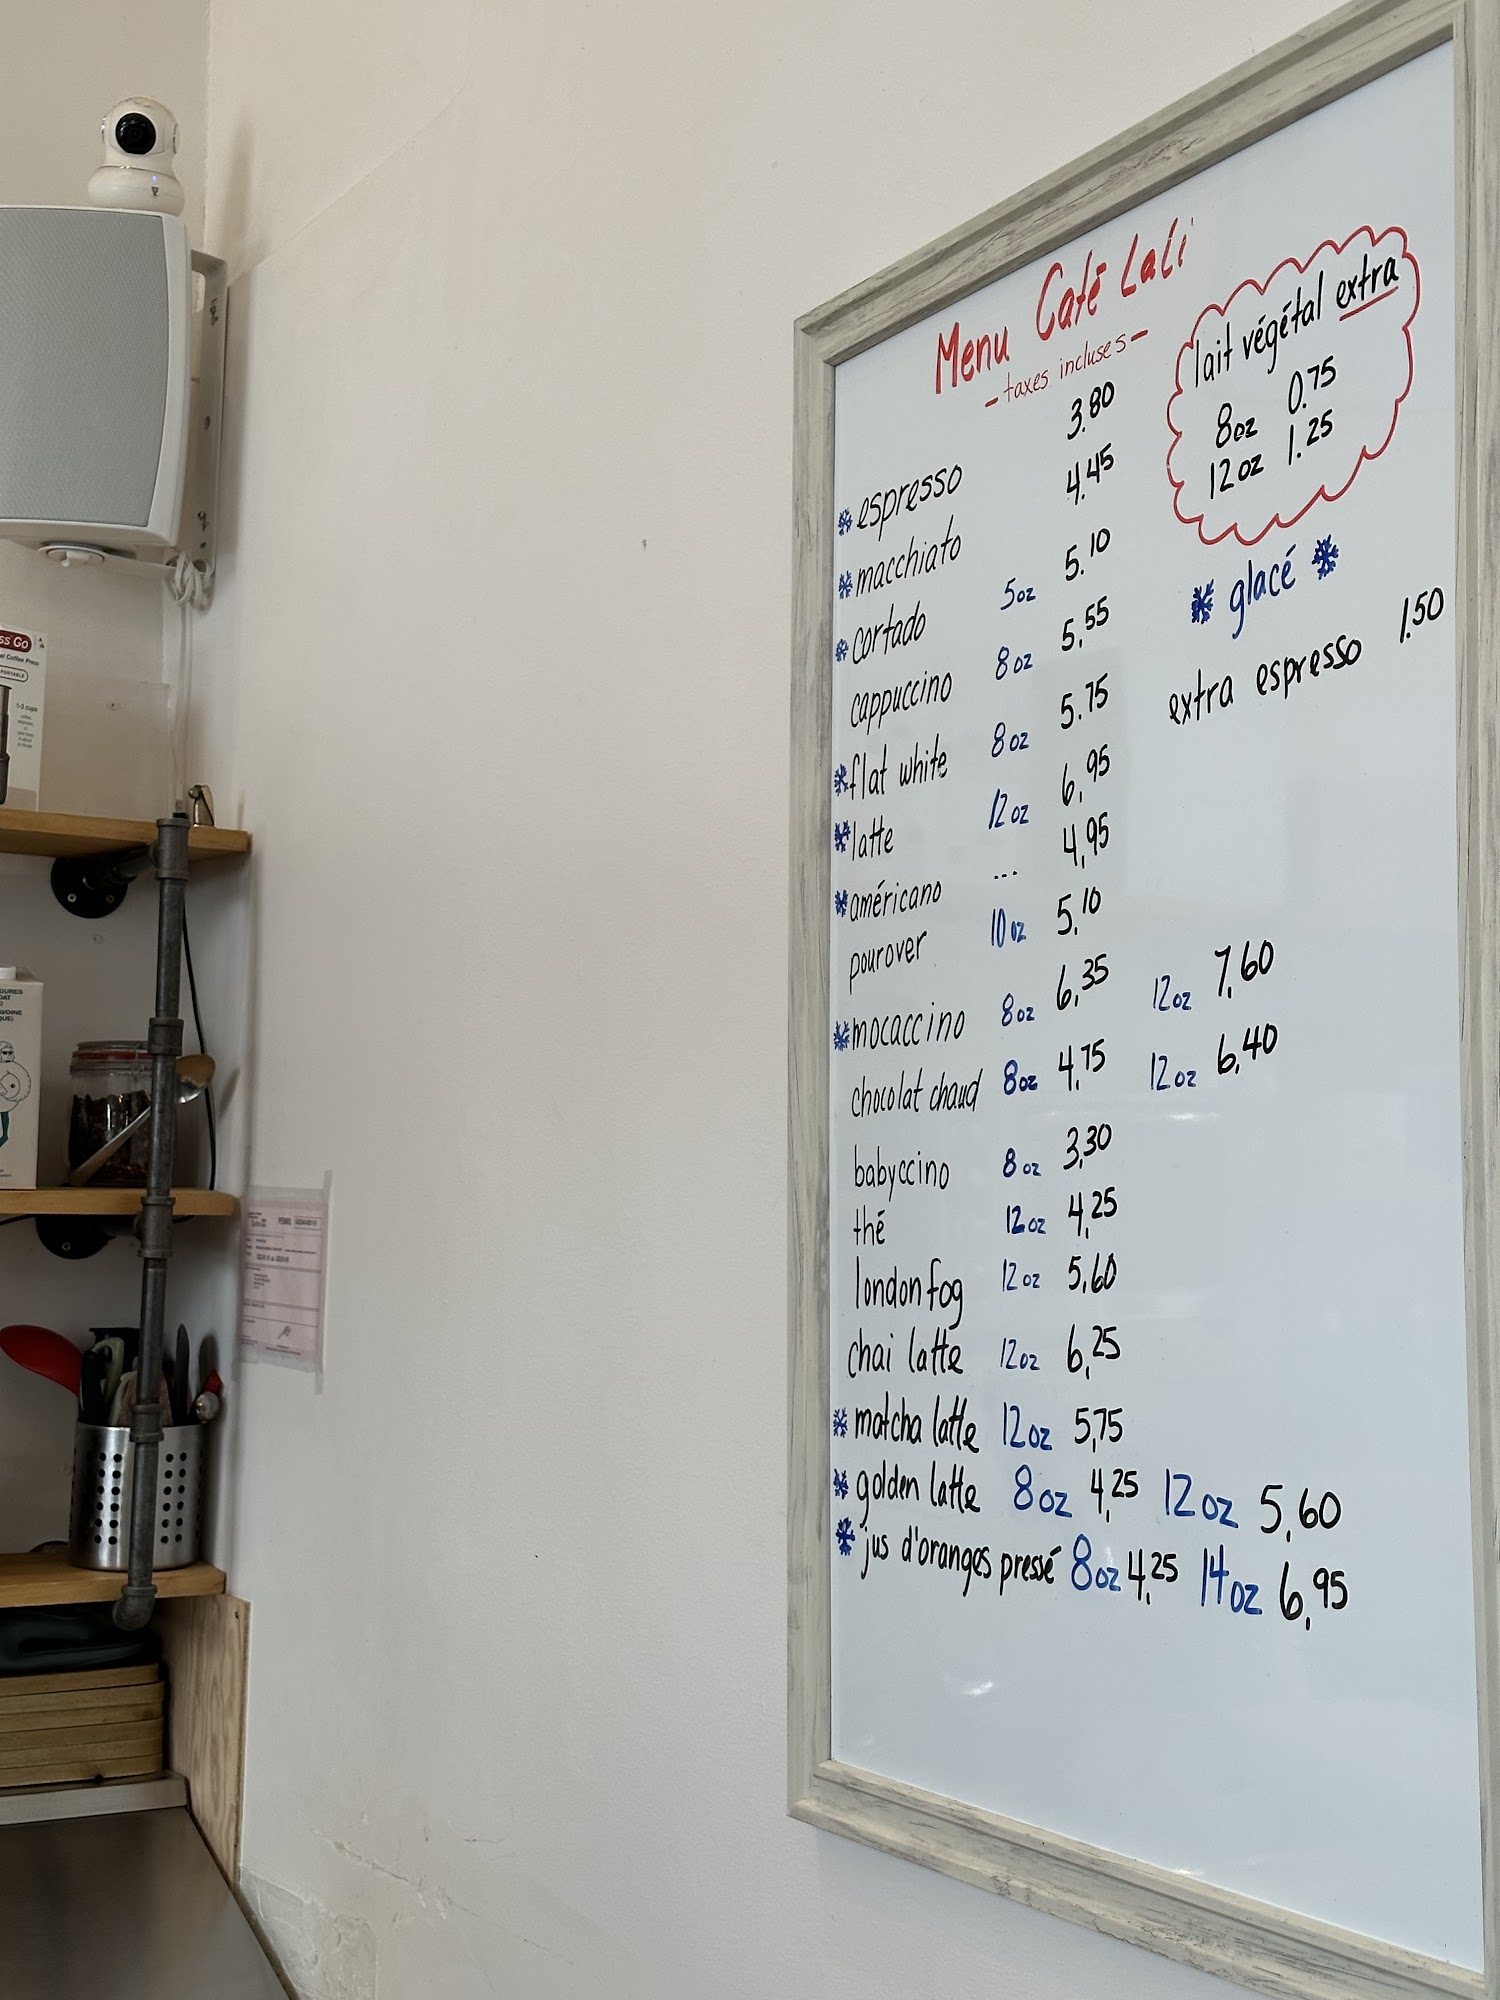 Menu Café Lali
- taxes incluses -
lait végétal extra
8oz 0.75
12oz 1.25
* glacé *
extra espresso 1.50
* espresso 3.80
* macchiato 4.45
* cortado 5oz 5.10
cappuccino 8oz 5.55
* flat white 8oz 5.75
* latte 12oz 6,95
* américano ... 4,95
pourover 10oz 5.10
* mocaccino 8oz 6,35 12oz 7,60
chocolat chaud 8oz 4,75 12oz 6,40
babyccino 8oz 3,30
thé 12oz 4,25
london fog 12oz 5,60
chai latte 12oz 6,25
* matcha latte 12oz 5,75
* golden latte 8oz 4,25 12oz 5,60
* jus d'oranges pressé 8oz 4,25 14oz 6,95
ss Go
Coffee Press
PORTABLE
1-3 cups